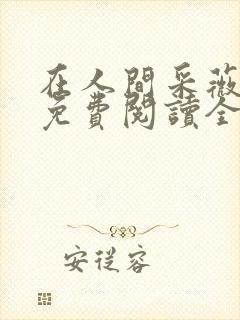 在人間采薇
免費閱讀全
安從容